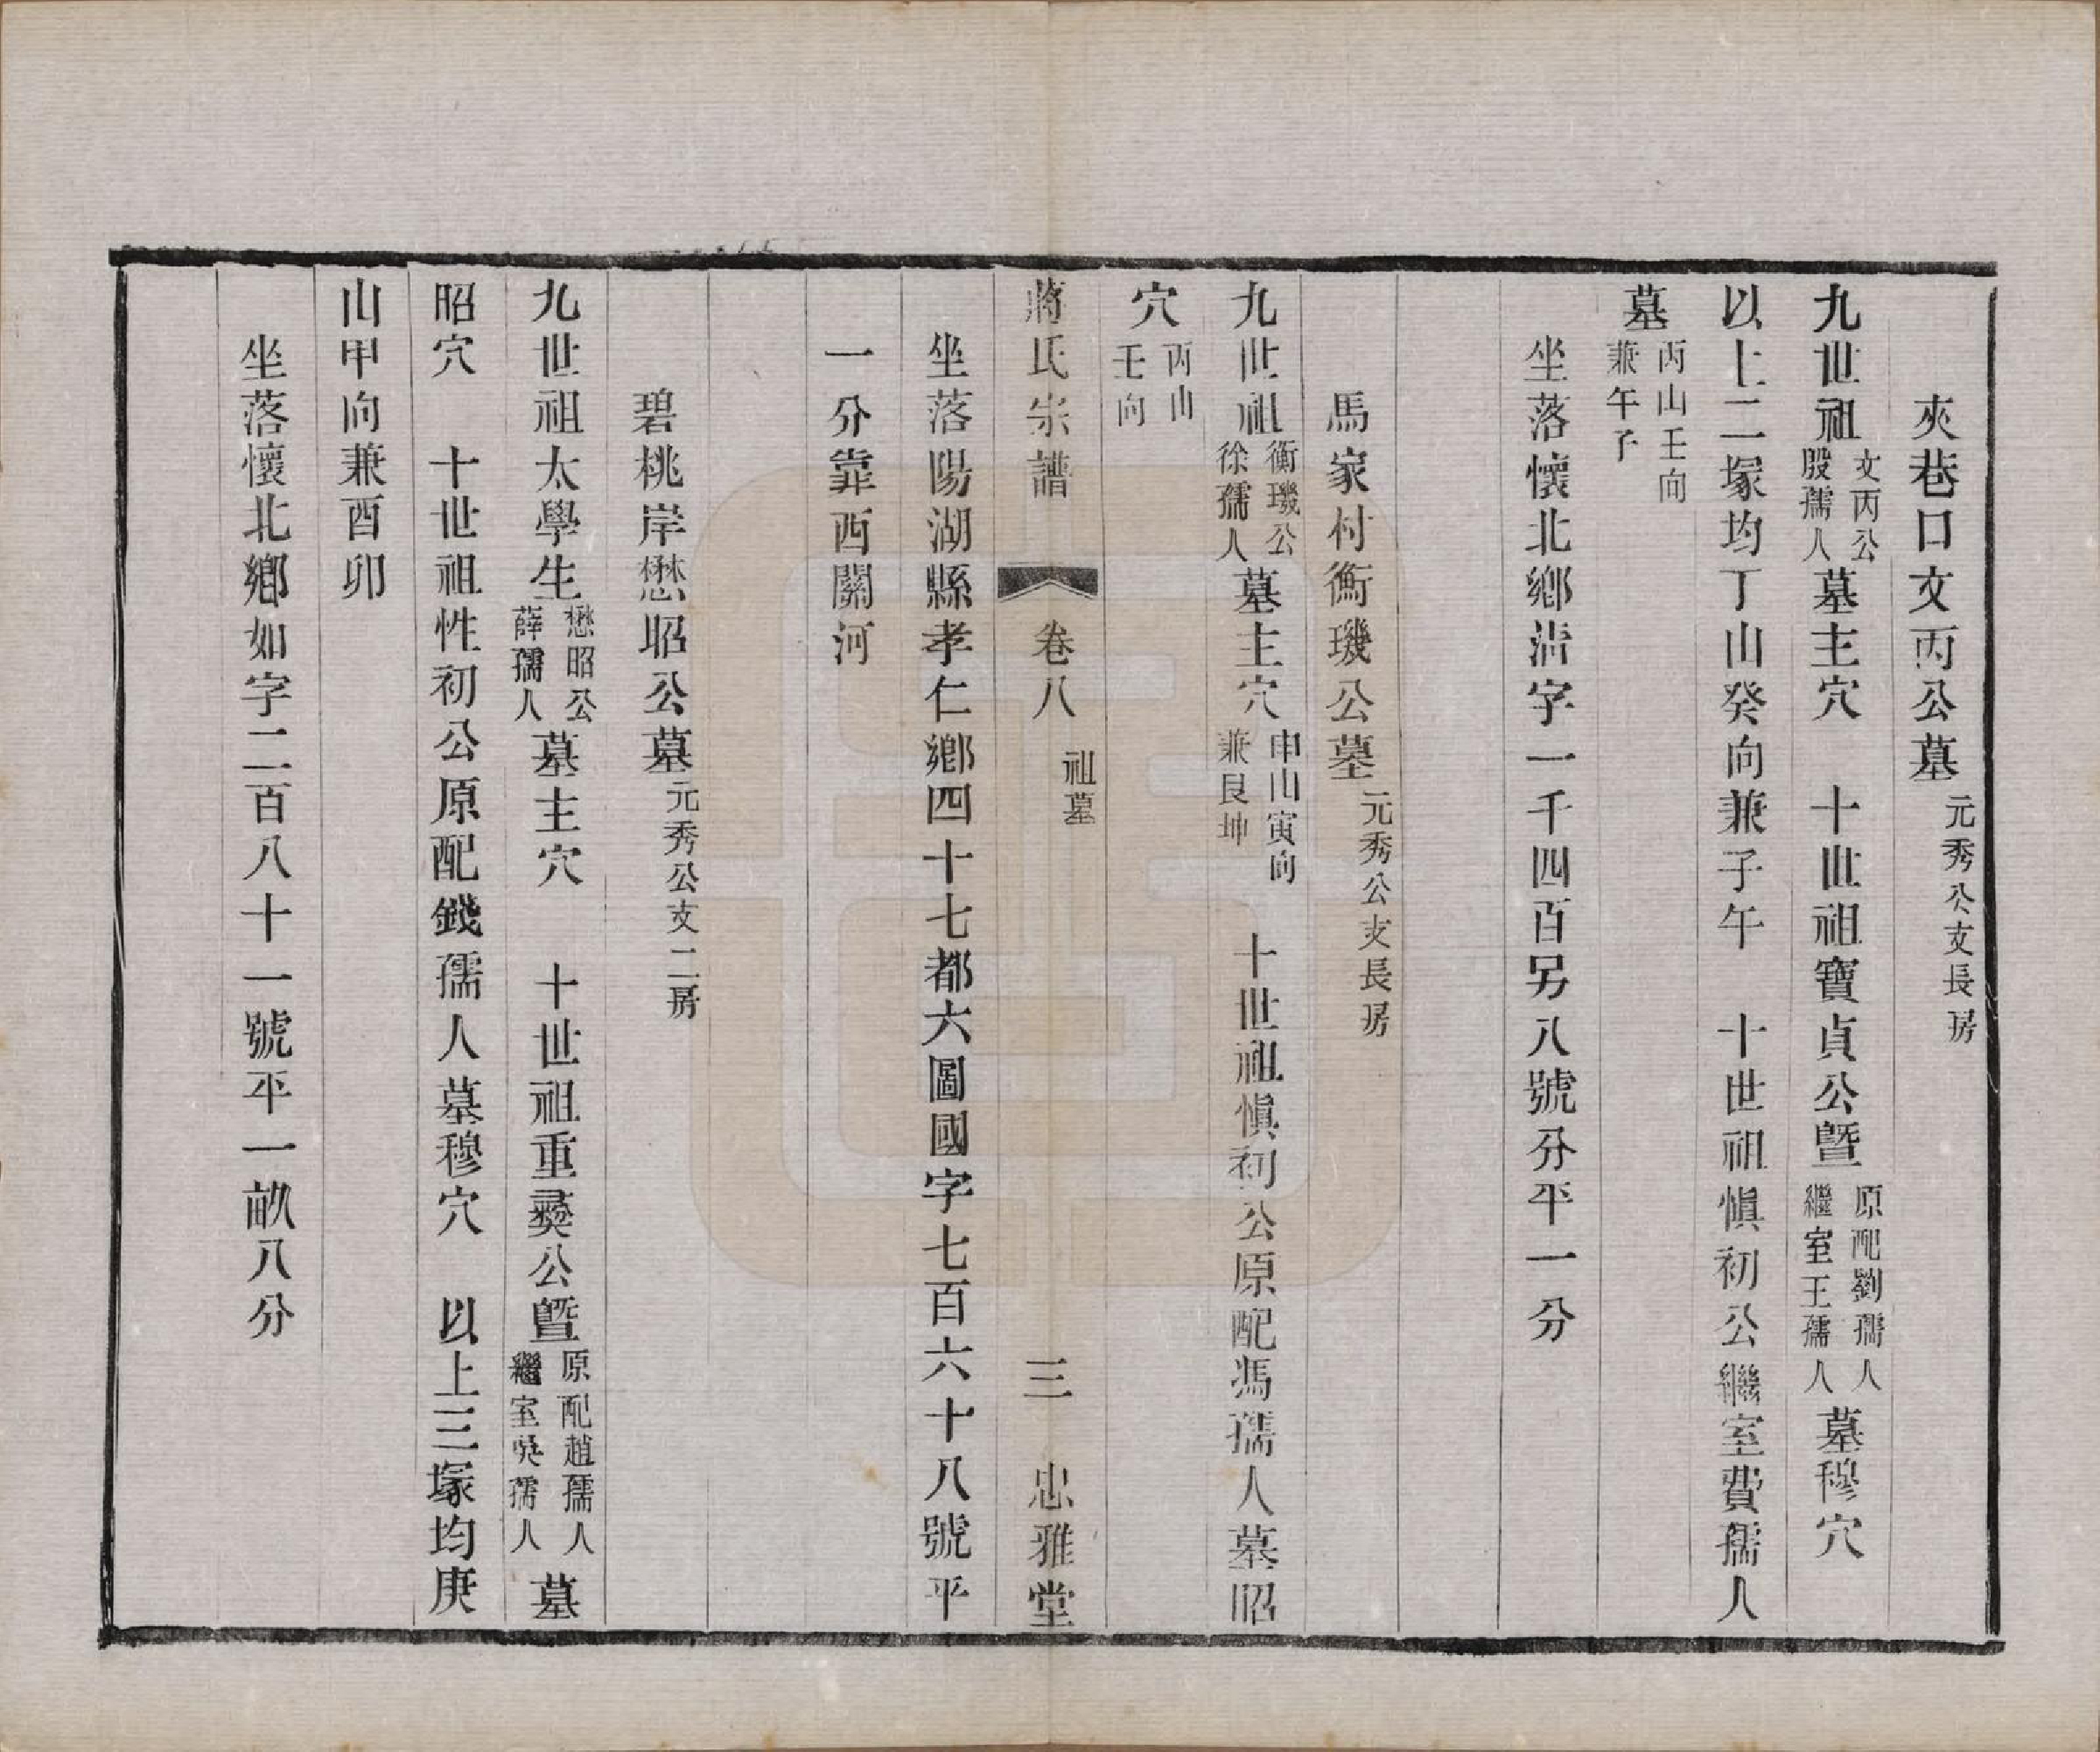 夾巷口文丙公墓元秀公支長房
九世祖文丙公殷孺人墓主穴　十世祖寶貞公暨原配劉孺人繼室王孺人墓穆穴
以上二塚均丁山癸向兼子午　十世祖愼初公繼室費孺人
墓丙山壬向兼午子
坐落懷北鄉淸字一千四百另八號分平一分
馬家村衡璣公墓元秀公支長房
九世祖衡璣公徐孺人墓主穴申山寅向兼艮坤　十世祖愼初公原配馮孺人墓昭
穴丙山壬向
蔣氏宗譜　卷八　祖墓　三　忠雅堂
坐落陽湖縣孝仁鄉四十七都六圖國字七百六十八號平
一分靠西關河
碧桃岸懋昭公墓元秀公支二房
九世祖太學生懋昭公薛孺人墓主穴　十世祖重彝公暨原配趙孺人繼室吳孺人墓
昭穴　十世祖性初公原配錢孺人墓穆穴　以上三塚均庚
山甲向兼酉卯
坐落懷北鄉如字二百八十一號平一畝八分